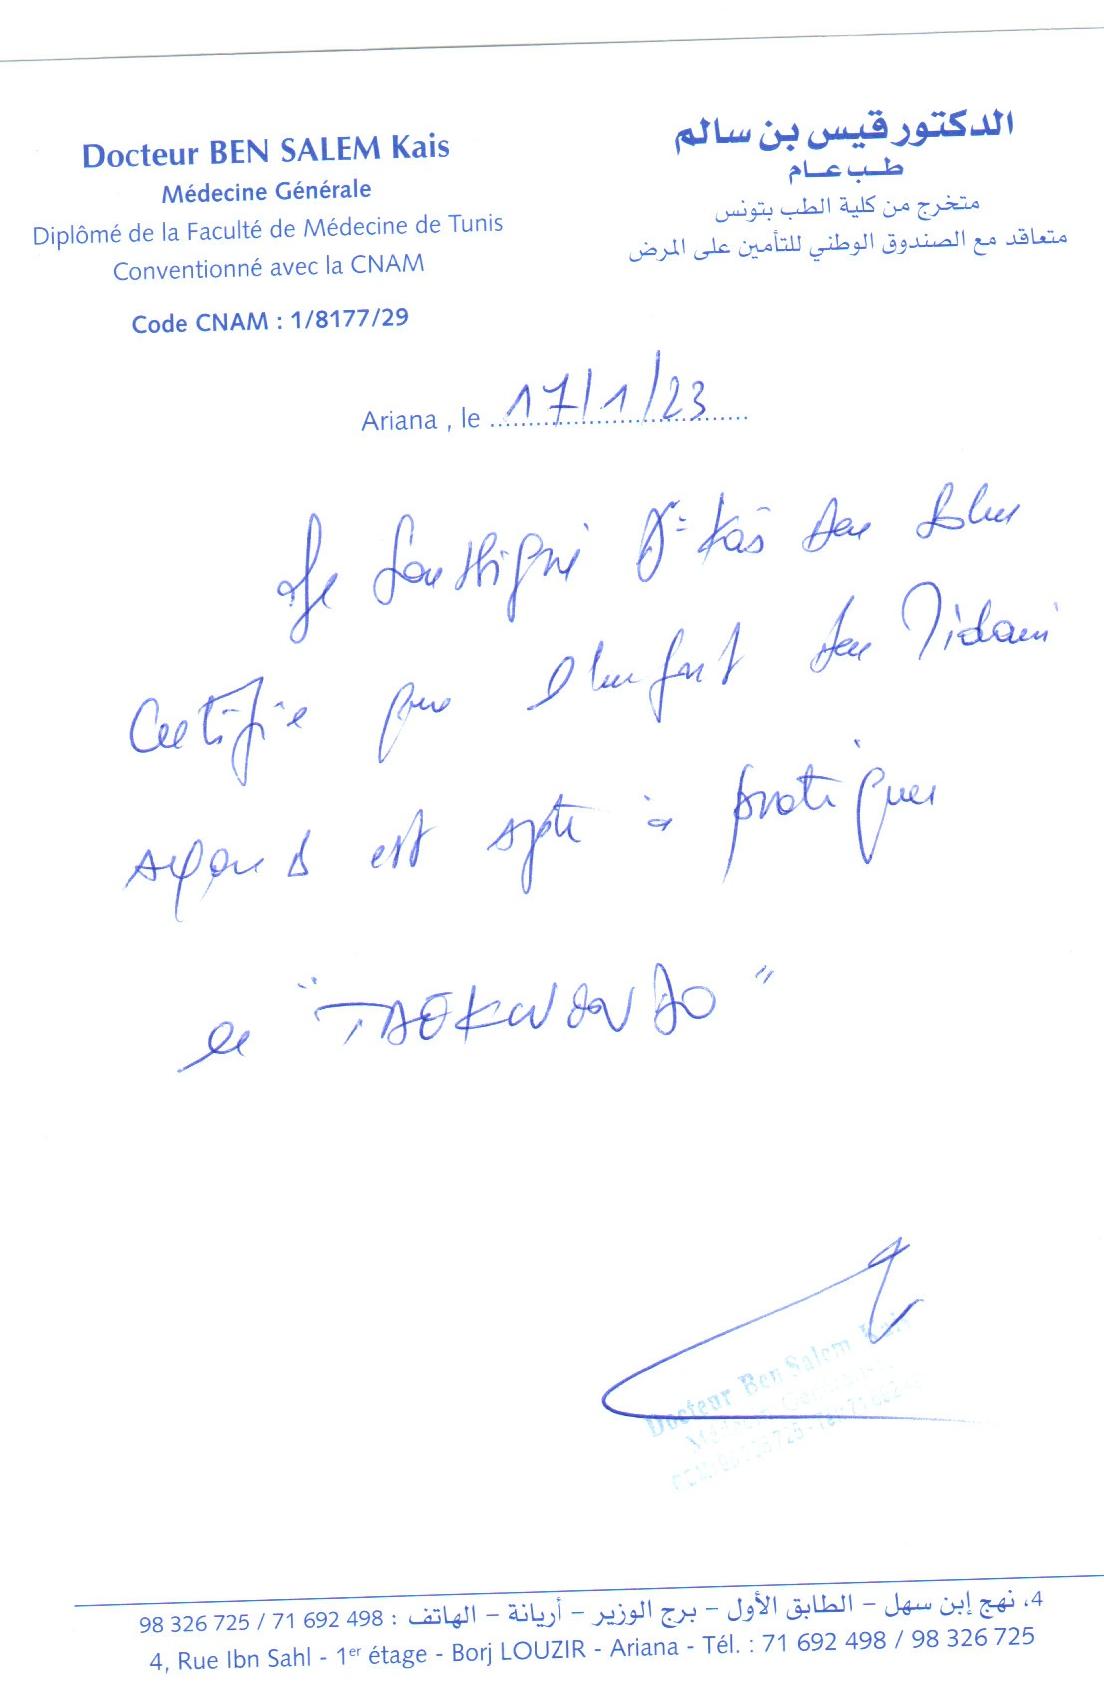 Docteur BEN SALEM Kais
Médecine Générale
Diplômé de la Faculté de Médecine de Tunis
Conventionné avec la CNAM
Code CNAM : 1/8177/29
الدكتور قيس بن سالم
طب عام
متخرج من كلية الطب بتونس
متعاقد مع الصندوق الوطني للتأمين على المرض
Ariana , le 17/1/23
Je soussigné Dr Kais Ben Salem
Certifie que l'enfant Ben
est apte à pratiquer
le "TAEKWONDO"
Docteur Ben Salem Kais
4، نهج إبن سهل – الطابق الأول – برج الوزير – أريانة – الهاتف : 98 326 725 / 71 692 498
4, Rue Ibn Sahl - 1er étage - Borj LOUZIR - Ariana - Tél. : 71 692 498 / 98 326 725